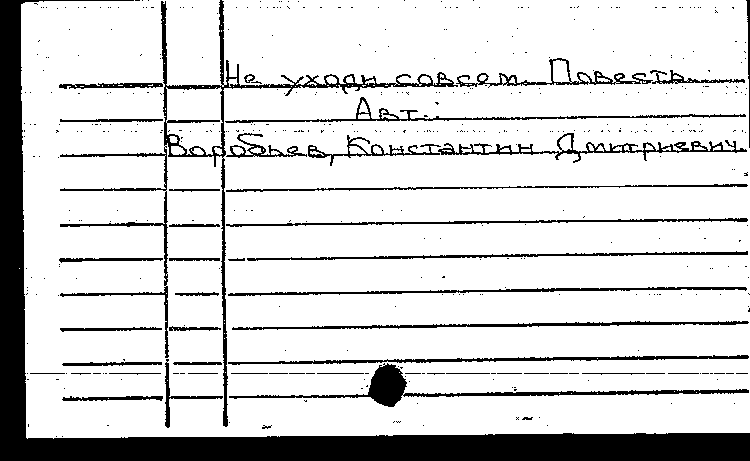 Не уходи совсем. Повесть.
Авт.:
Воробьев, Константин Дмитриевич.